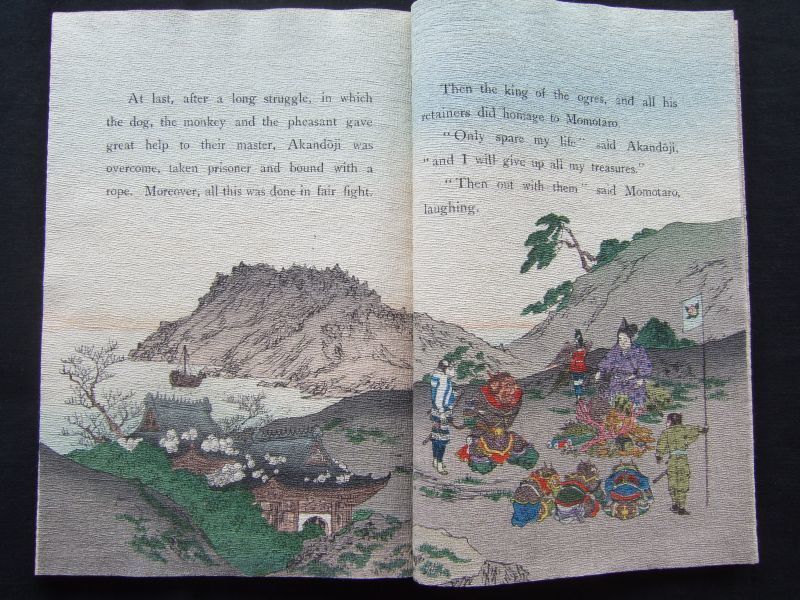 At last, after a long struggle, in which
the dog, the monkey and the pheasant gave
great help to their master, Akandōji was
overcome, taken prisoner and bound with a
rope. Moreover, all this was done in fair fight.
Then the king of the ogres, and all his
retainers did homage to Momotaro.
"Only spare my life" said Akandōji,
"and I will give up all my treasures."
"Then out with them" said Momotaro,
laughing.